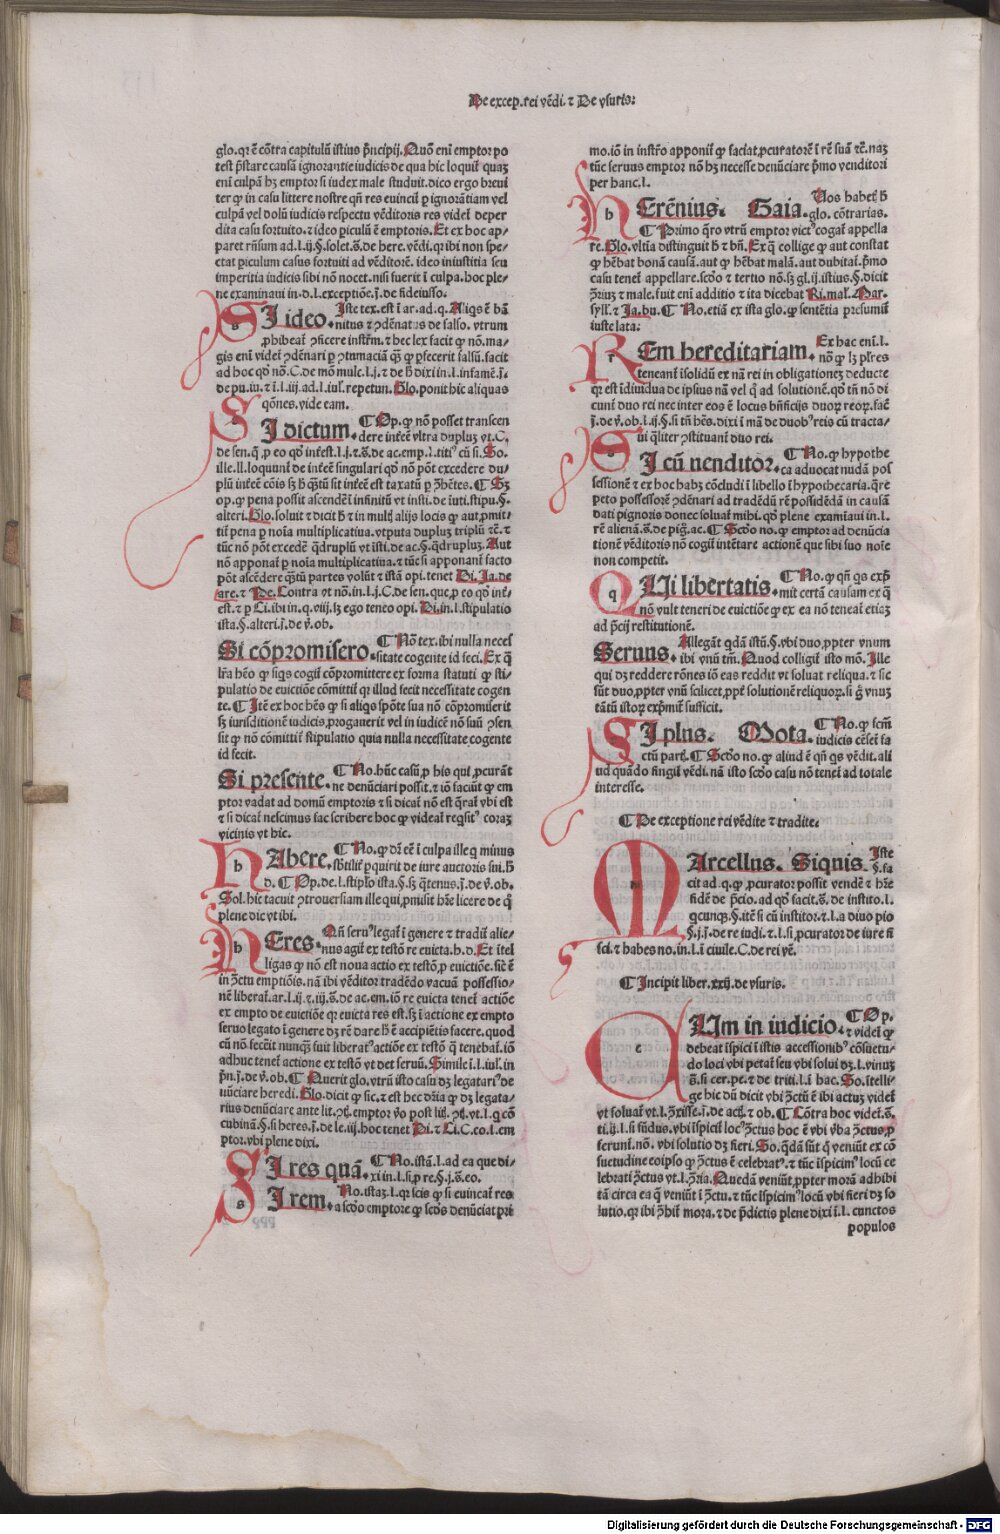 De excep. rei vẽdi. ⁊ De vsuris:
glo. qr ẽ cõtra capitulũ istius p̃ncipij. Quõ eni emptor po
test p̃stare causã ignorantie iudicis de qua hic loquit̃ quaꝫ
eni culpã hꝫ emptor si iudex male studuit. dico ergo breui
ter ꝙ in casu littere nostre qñ res euincit̃ ꝑ ignorãtiam vel
culpã vel dolũ iudicis respectu vẽditoris res videt̃ deper
dita casu fortuito. ⁊ ideo ꝑiculũ ẽ emptoris. Et ex hoc ap
paret rñsum ad. l. ij. §. solet. s̃. de here. vẽdi. qr ibi non spe
ctat ꝑiculum casus fortuiti ad vẽditorẽ. ideo iniustitia seu
imperitia iudicis sibi nõ nocet. nisi fuerit ĩ culpa. hoc ple
ne examinaui in. d. l. exceptiõe. j̃. de fideiusso.
SI ideo. Iste tex. est ĩ ar. ad. q. Aliqs ẽ bã
nitus ⁊ ꝯdẽnatus de falso. vtrum
ꝓhibeat̃ ꝯficere instr̃m. ⁊ hec lex facit ꝙ nõ. ma
gis eni videt̃ ꝯdẽnari ꝑ ꝯtumaciã q̃ꝫ ꝙ ꝑfecerit falsũ. facit
ad hoc qđ nõ. C. de mõ mulc. l. j. ⁊ de h̃ dixi in. l. infamẽ. j̃.
de pu. iu. ⁊ ĩ. l. iij. ad. l. iul. repetun. Glo. ponit hic aliquas
q̃ones. vide eam.
SI dictum. ¶ Op. ꝙ nõ posset transcen
dere inteẽ vltra dupluꝫ vt. C.
de sen. q̃. ꝑ eo qđ intẽst. l. j. ⁊. s̃. de ac. emp. l. titiꝰ cũ si. So.
ille. ll. loquunt̃ de inteẽ singulari qđ nõ põt excedere du
plũ inteẽ cõis sꝫ h̃ q̃stũ sit inteẽ est taxatũ ꝑ ꝯhẽtes. ¶ Sꝫ
op. ꝙ pena possit ascendeĩ infinitũ vt insti. de ĩuti. stipu. §.
alteri. Glo. soluit ⁊ dicit h̃ ⁊ in multꝭ alijs locis ꝙ aut ꝓmit
tit̃ pena ꝑ noĩa multiplicatiua. vtputa dupluꝫ triplũ ⁊c̃. ⁊
tũc nõ põt excedẽ q̃druplũ vt ĩsti. de ac. §. q̃drupluꝫ. Aut
nõ apponat̃ ꝑ noĩa multiplicatiua. ⁊ tũc si apponant̃ facto
põt ascẽdere q̃stũ partes volũt ⁊ istã opi. tenet Di. Ja. de
are. ⁊ Pe. Contra vt nõ. in. l. j. C. de sen. que, ꝓ eo qđ intẽ
est. ⁊ ꝑ Ci. ibi in. q. viij. sꝫ ego teneo opi. Di. in. l. stipulatio
ista. §. alteri. j̃. de v̆. ob.
Si cõpromisero. ¶ Nõ tex. ibi nulla necef
sitate cogente id feci. Ex q̃
lr̃a hẽo ꝙ siqs cogit̃ cõpromittere ex forma statuti ꝙ sti
pulatio de euictiõe cõmittit̃ qr illud fecit necessitate cogen
te. ¶ Itẽ ex hoc hẽs ꝙ si aliqs spõte sua nõ cõpromiserit
sꝫ iurisditionẽ iudicis, ꝓrogauerit vel in iudicẽ nõ suũ ꝯsen
sit ꝙ nõ cõmittit̃ stipulatio quia nulla necessitate cogente
id fecit.
Si presente. ¶ No. hũc casũ ꝓ his qui, ꝓcurãt
ne denũciari possit. ⁊ iõ faciũt ꝙ em
ptor vadat ad domũ emptoris ⁊ si dicat̃ nõ est q̃rat̃ vbi est
⁊ si dicat̃ nescimus fac scribere hoc ꝙ videat̃ req̃sitꝰ coraꝫ
vicinis vt hic.
HAbere. ¶ No. ꝙ dr̃ eẽ ĩ culpa ille q̃ minus
sb̃tilit̃ ꝑquirit de iure auctoris sui. h̃
d. ¶ Op. de. l. stip̃lo ista. §. sꝫ q̃tenus. j̃. de v̆. ob.
Sol. hic tacuit ⁊trouersiam ille qui, ꝓmisit hr̃e licere de q̃
plene dic vt ibi.
HEres. Qñ seruꝰ legat̃ ĩ genere ⁊ tradit̃ alie
nus agit̃ ex testõ re euicta. h. d. Et ĩtel
ligas ꝙ nõ est noua actio ex testõ, ꝓ euictiõe. sic̃ ẽ
in ꝯctu emptiõis. nã ibi vẽditor tradẽdo vacuã possessio
nẽ liberat̃. ar. l. ij. ⁊. iij. s̃. de ac. em. iõ re euicta tenet̃ actiõe
ex empto de euictiõe ꝙ euicta res est. sꝫ ĩ actione ex empto
seruo legato ĩ genere dꝫ rẽ dare h̃ ẽ accipiẽtis facere. quod
cũ nõ fecẽit nunq̃ꝫ fuit liberatꝰ actiõe ex testõ q̃ tenebat̃. iõ
adhuc tenet̃ actione ex testõ vt det seruũ. Simile ĩ. l. iul. in
p̃n. j̃. de v̆. ob. ¶ Querit glo. vtrũ isto casu dꝫ legatariꝰ de
nũciare heredi. Glo. dicit ꝙ sic. ⁊ est hec dr̃ia ꝙ dꝫ legata
rius denũciare ante lit. ꝯtꝭ. emptor v̆o post litꝭ. ꝯtꝭ. vt. l. q̃ cõ
cubinã. §. si heres. j̃. de le. iij. hoc tenet Di. ⁊ Ci. C. co. l. em
ptor. vbi plene dixi.
SI res quã. ¶ No. istã. l. ad ea que di
xi in. l. si, ꝓ re. §. j. s̃. eo.
SI rem. No. istaꝫ. l. qr scis ꝙ si euincat̃ res
a scđo emptore ꝙ scđs denũciat pri
mo. iõ in instr̃o apponit̃ ꝙ faciat, ꝓcuratorẽ ĩ rẽ suã ⁊c̃. naꝫ
tũc seruus emptor nõ hꝫ necesse denũciare p̃mo venditori
per hanc. l.
HErẽnius. Gaia. Uos habetꝭ h̃
glo. cõtrarias.
¶ Primo q̃ro vtrũ emptor victꝰ cogat̃ appella
re. Glo. vltĩa distinguit h̃ ⁊ bñ. Ex q̃ collige ꝙ aut constat
ꝙ hẽbat bonã causã. aut ꝙ hẽbat malã. aut dubitat̃. p̃mo
casu tenet̃ appellare. scđo ⁊ tertio nõ. sꝫ gl. ij. istius. §. dicit
ꝯr̃ius ⁊ male. fuit eni additio ⁊ ita dicebat Ri. mal. Mar.
syll. ⁊ Ja. bu. ¶ No. etiã ex ista glo. ꝙ sentẽtia p̃sumit̃
iuste lata.
REm hereditariam. Ex hac eni. l.
nõ ꝙ lꝫ pl̃res
teneant̃ ĩsolidũ ex nã rei in obligationeꝫ deducte
qr est ĩdiuidua de ipsius nã vel q̃ ad solutionẽ. qđ tñ nõ di
cunt̃ duo rei nec inter eos ẽ locus bñficijs duoꝝ reoꝝ. fac̃
j̃. de v̆. ob. l. ij. §. si tñ hẽs. dixi ĩ mã de duobꝰ reis cũ tracta
ui q̃liter ꝯstituant̃ duo rei.
SI cũ venditor. ¶ No. ꝙ hypothe
ca aduocat nudã pos
sessionẽ ⁊ ex hoc habꝫ cõcludi ĩ libello ĩ hypothecaria. q̃re
peto possessorẽ ꝯdẽnari ad tradẽdũ rẽ possidẽdã in causã
dati pignoris donec soluat̃ mihi. qđ plene examĩaui in. l.
rẽ alienã. s̃. de pig̃. ac. ¶ Scđo no. ꝙ emptor ad denũcia
tionẽ vẽditoris nõ cogit̃ intẽtare actionẽ que sibi suo noĩe
non competit.
QUi libertatis. ¶ No. ꝙ qñ qs exp̃
mit certã causam ex q̃
nõ vult teneri de euictiõe ꝙ ex ea nõ teneat̃ etiaꝫ
ad p̃cij restitutionẽ.
Seruus. Allegãt q̃dã istũ. §. vbi duo, ꝓpter vnum
ibi vnũ tm̃. Quod colligit̃ isto mõ. Ille
qui dꝫ reddere rõnes iõ eas reddit vt soluat reliqua. ⁊ sic
sũt duo, ꝓpter vnũ scilicet, ꝓpt̃ solutionẽ reliquoꝝ. si g̃ vnuꝫ
tãtũ istoꝝ exp̃mit̃ sufficit.
SI plus. Mota. ¶ No. ꝙ fcm̃
iudicis cẽset̃ fa
ctũ partꝭ. ¶ Scđo no. ꝙ aliud ẽ qñ qs vẽdit. ali
ud quãdo fingit̃ vẽdi. nã isto scđo casu nõ tenet̃ ad totale
interesse.
¶ De exceptione rei vẽdite ⁊ tradite.
MArcellus. Siquis. Iste
§. fa
cit ad. q. ꝙ, ꝓcurator possit vendẽ ⁊ hr̃e
fidẽ de p̃cio. ad qđ facit. s̃. de instito. l.
q̃cunqꝫ. §. itẽ si cũ institor. ⁊. l. a diuo pio
§. j. j̃. de re iudi. ⁊. l. si, ꝓcurator de iure fi
sci. ⁊ habes no. in. l. ĩ ciuile. C. de rei vẽ.
¶ Incipit liber. xxij. de vsuris.
CUm in iudicio. ¶ Op.
⁊ videt̃ ꝙ
debeat ĩspici ĩ istis accessionibꝰ cõsuetu
do loci vbi petat̃ seu vbi solui dꝫ. l. vinuꝫ
s̃. si cer. pe. ⁊ de triti. l. ĩ hac. So. ĩtelli
ge hic dũ dicit vbi ꝯctũ ẽ ibi actuꝫ videt̃
vt soluat̃ vt. l. ꝯr̃isse. j̃. de actꝭ. ⁊ ob. ¶ Cõtra hoc videt̃. s̃.
ti. ij. l. si fũdus. vbi ĩspicit̃ locꝰ ꝯctus hoc ẽ vbi v̆ba ꝯctus, ꝓ
ferunt̃. nõ. vbi solutio dꝫ fieri. So. q̃dã sũt q̃ veniũt ex cõ
suetudine eoipso ꝙ ꝯctus ẽ celebratꝰ. ⁊ tũc ĩspicimꝰ locũ ce
lebrati ꝯctus vt. l. ꝯr̃ia. Quedã veniũt, ꝓpter morã adhibi
tã circa ea q̃ veniũt ĩ ꝯctu. ⁊ tũc ĩspicimꝰ locũ vbi fieri dꝫ so
lutio. qr ibi ꝯhit̃ mora. ⁊ de p̃dictis plene dixi ĩ. l. cunctos
populos
Digitalisierung gefördert durch die Deutsche Forschungsgemeinschaft - DFG